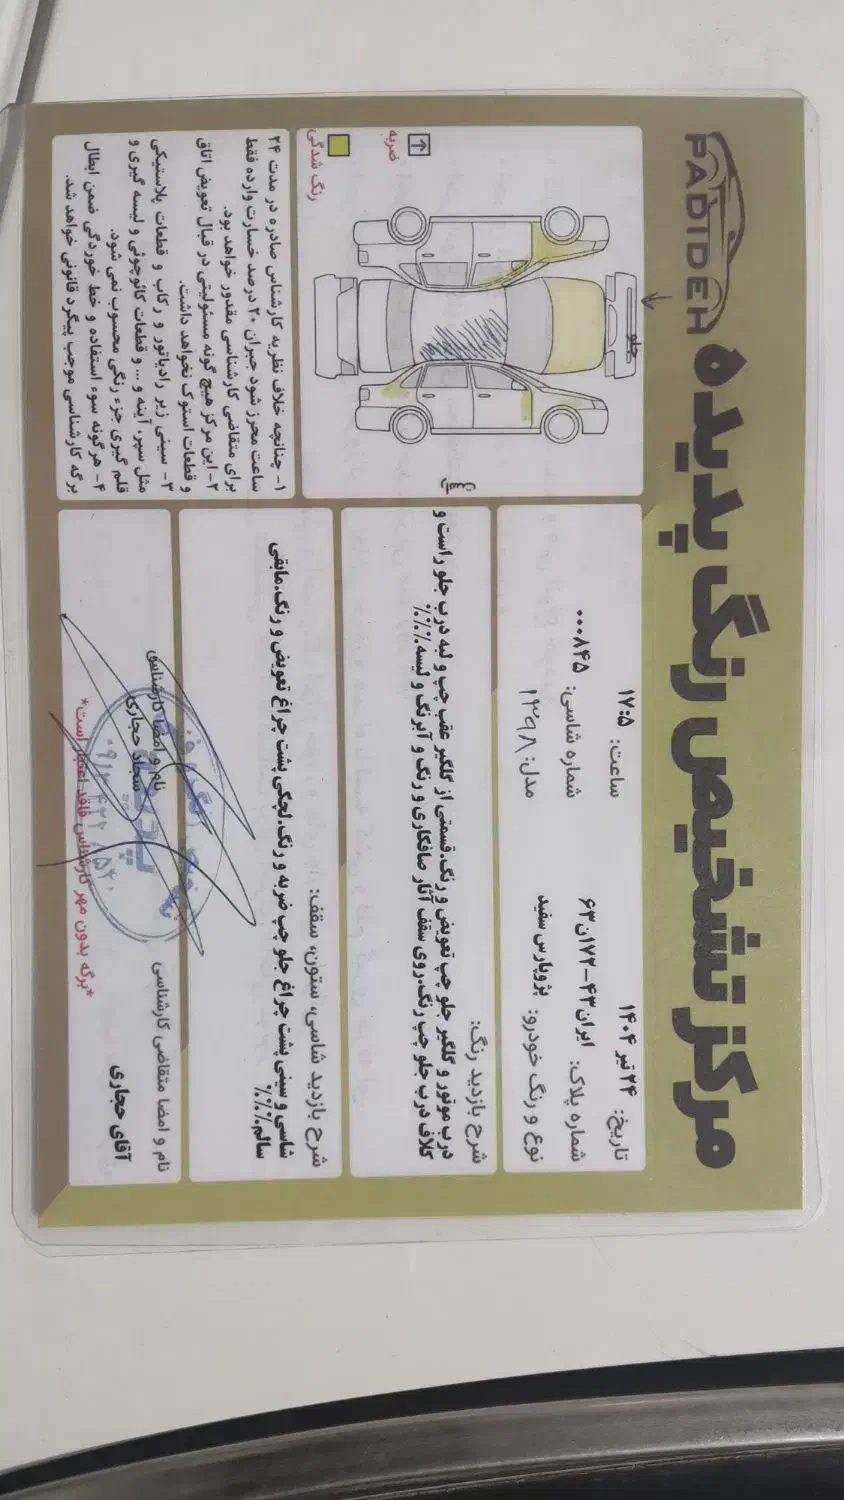 مرکز تشخیص رنگ پدیده
PADIDEH
تاریخ: ۲۴ تیر ۱۴۰۴ ساعت: ۱۷:۵
شماره پلاک: ایران۴۳-۱۷۲ن۶۳ شماره شاسی: ۰۰۰۸۴۵
نوع و رنگ خودرو: پژوپارس سفید مدل: ۱۳۹۸
شرح بازدید رنگ:
درب موتور و گلگیر جلو چپ تعویض و رنگ.قسمتی از گلگیر عقب چپ و لبه درب جلو راست و
کلاف درب جلو چپ رنگ.روی سقف آثار صافکاری و رنگ و آبرنگ و لیسه.٪٪٪
شرح بازدید شاسی، ستون، سقف:
شاسی و سینی پشت چراغ جلو چپ ضربه و رنگ.لچکی پشت چراغ تعویض و رنگ.مابقی
سالم.٪٪٪
نام و امضا متقاضی کارشناسی
آقای حجاری
نام و امضا کارشناس
سجاد حجاری
*برگه بدون مهر کارشناس فاقد اعتبار است*
جلو
ضربه
رنگ شدگی
۱- چنانچه خلاف نظریه کارشناس صادره در مدت ۲۴
ساعت محرز شود جبران ۲۰ درصد خسارت وارده فقط
برای متقاضی کارشناسی مقدور خواهد بود.
۲- این مرکز هیچ گونه مسئولیتی در قبال تعویض اتاق
و قطعات استوک نخواهد داشت.
۳- سینی زیر رادیاتور و رکاب و قطعات پلاستیکی
مثل سپر، آینه و ... و قطعات کائوچوئی و لیسه گیری و
قلم گیری جزء رنگی محسوب نمی شود.
۴- هرگونه سوء استفاده و خط خوردگی ضمن ابطال
برگه کارشناسی موجب پیگرد قانونی خواهد شد.